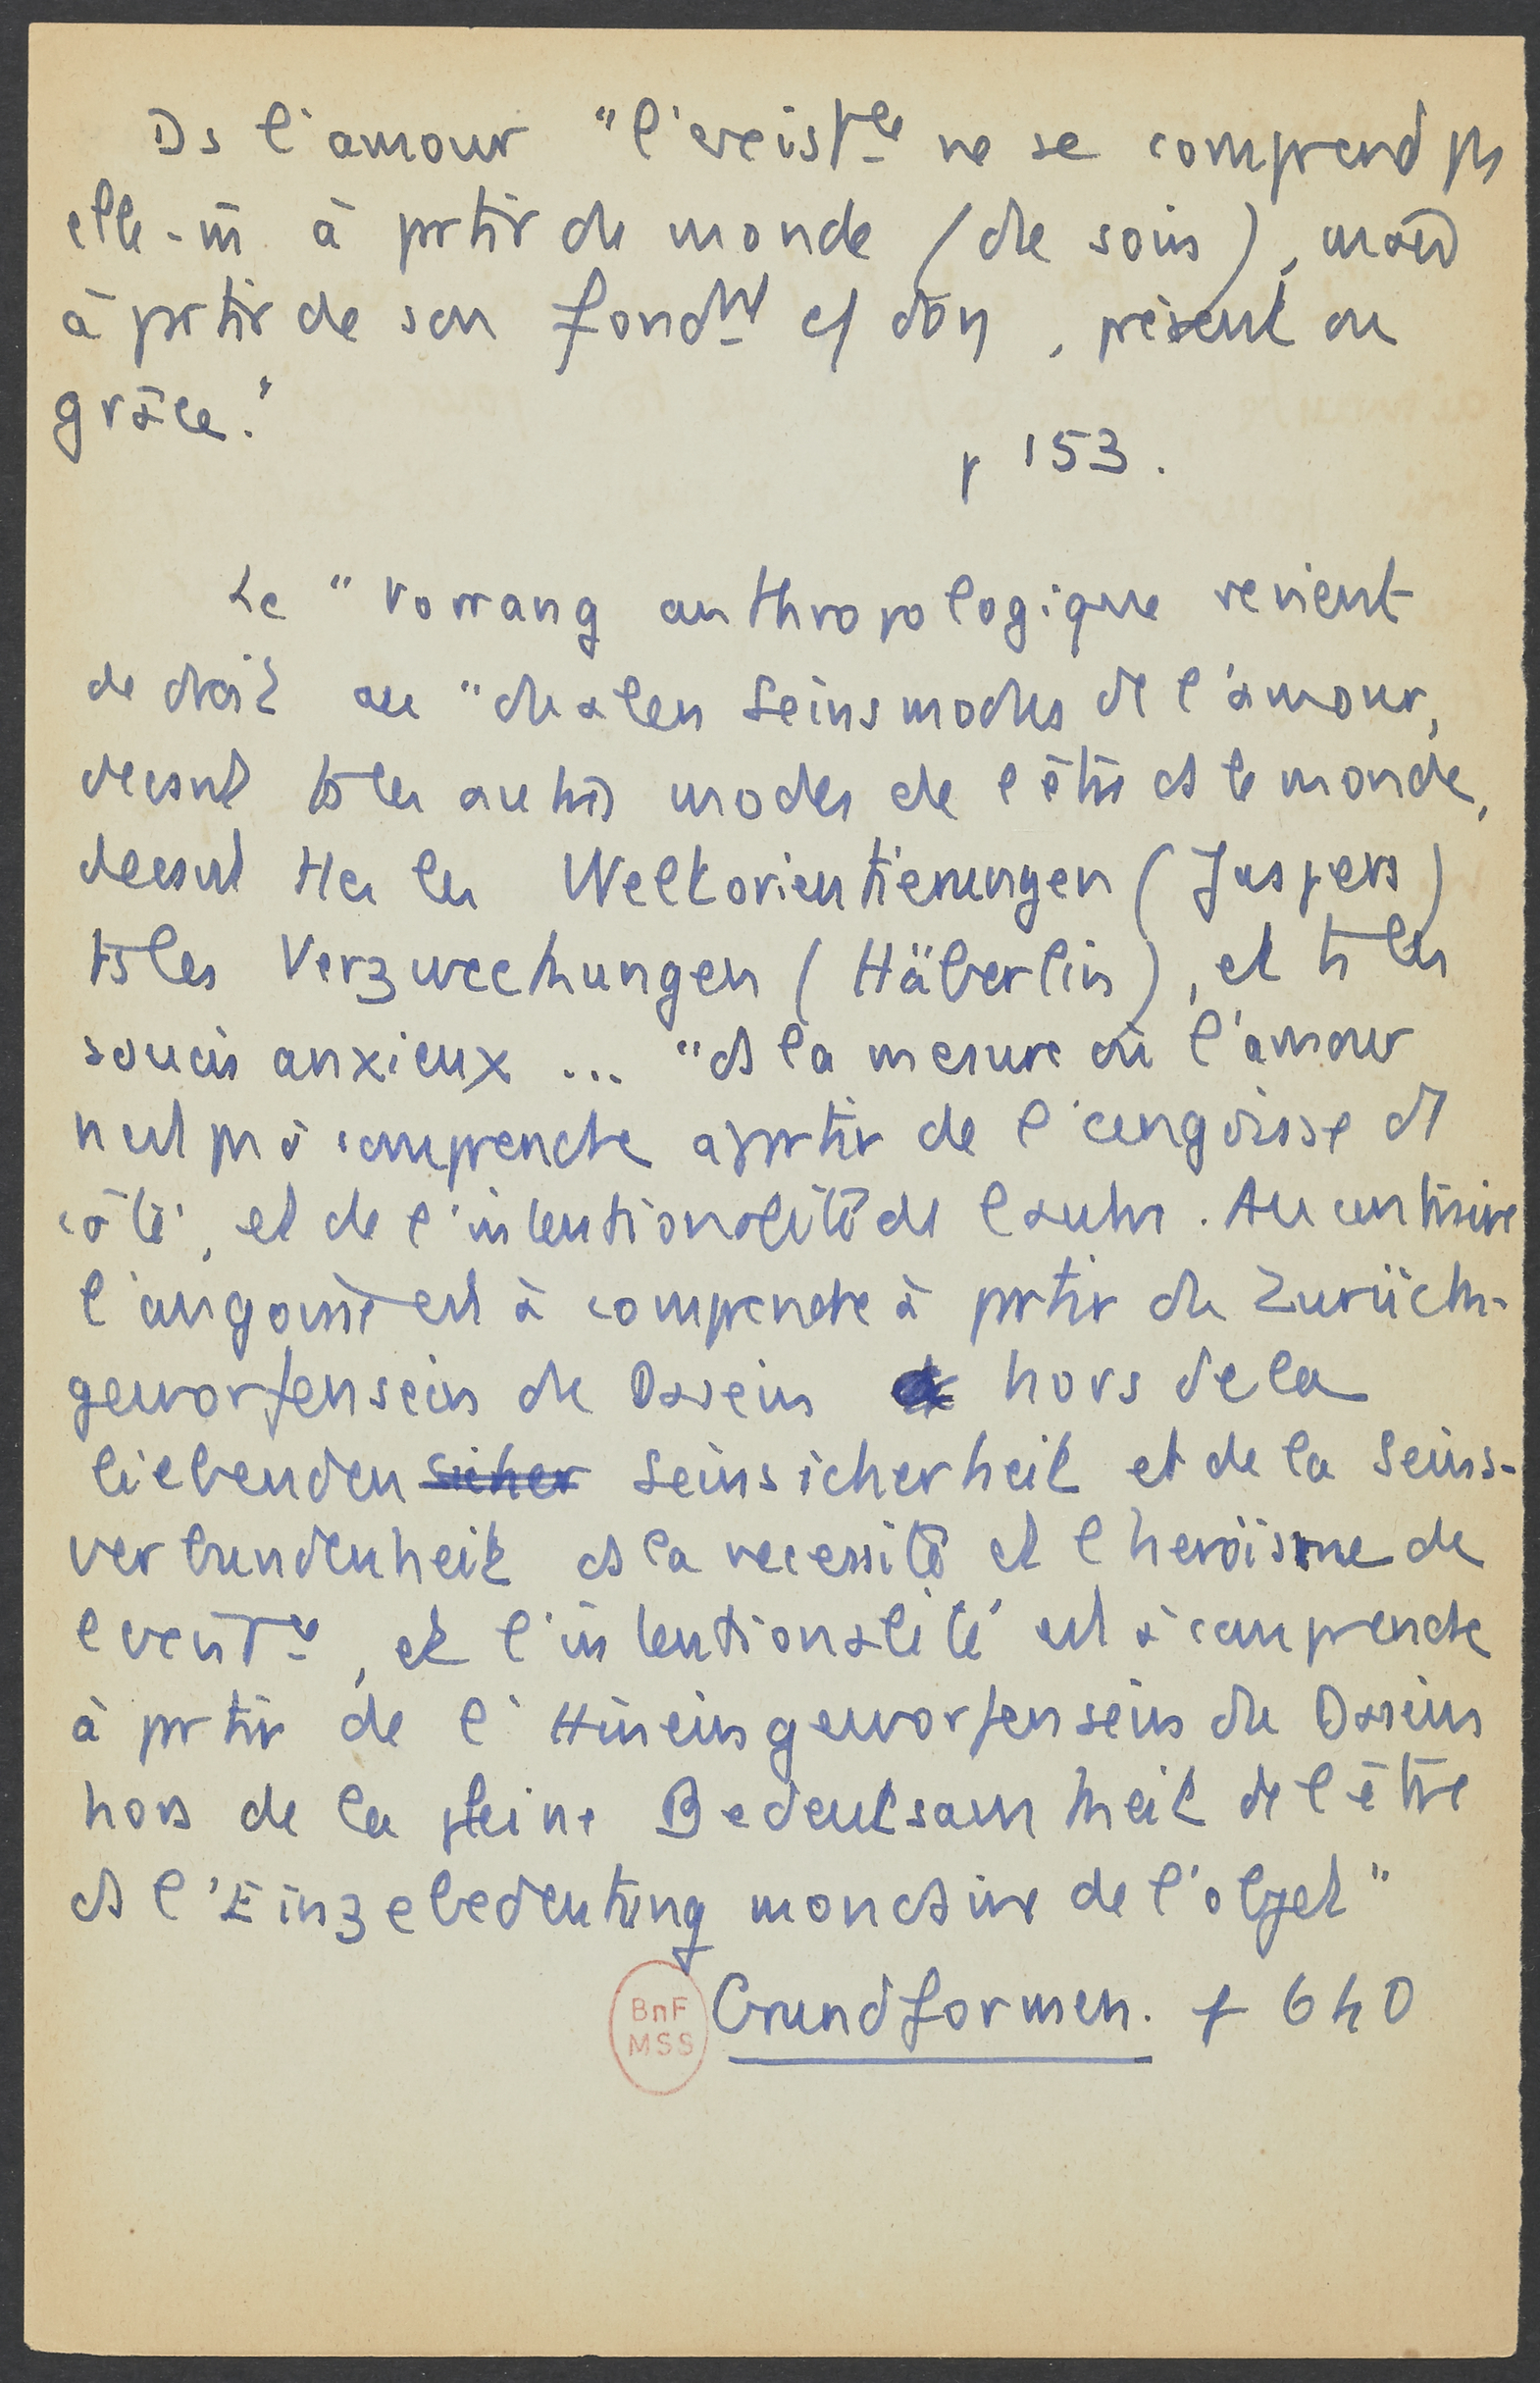 Ds l'amour "l'existce ne se comprend ps
elle-m̄ à prtir du monde (du soin), mais
à prtir de son fondmt c/ don, présent ou
grâce."
p 153.
Le "Vorrang anthropologique revient
de droit au "dualen Seinsmodus de l'amour,
devant ts les autres modes de l'être ds le monde,
devant ttes les Weltorientierungen (Jaspers)
ts les Verzweckungen (Häberlin), et ts les
soucis anxieux ... "ds la mesure où l'amour
n'est ps à comprendre à prtir de l'angoisse d'1
côté, et de l'intentionalité de l'autre. Au contraire
l'angoisse est à comprendre à prtir du Zurück-
geworfensein du Dasein hors de la
liebenden sicher Seinsicherheit et de la Seins-
verbundenheit ds la nécessité et l'héroïsme de
l'existce, et l'intentionalité est à comprendre
à prtir de l'Hineingeworfensein du Dasein
hors de la pleine Bedeutsamkeit de l'être
ds l'Einzelbedeutung mondaine de l'objet"
BnF
MSS
Grundformen. p 640